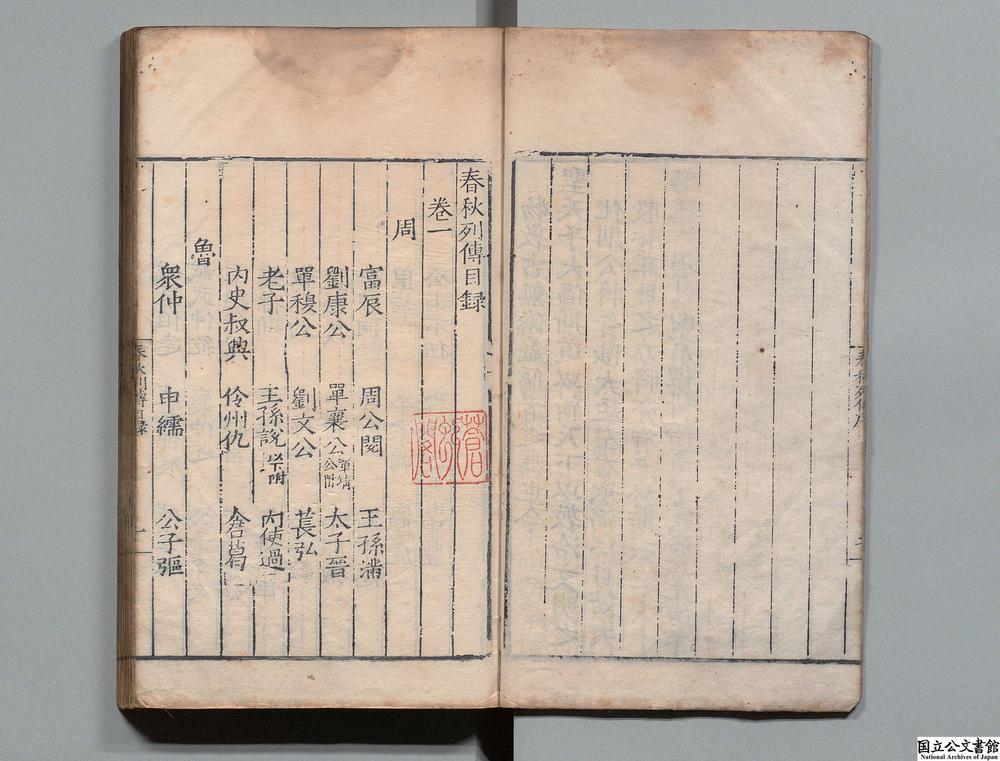 春秋列傳目録
卷一
周
富辰 周公閱 王孫滿
劉康公 單襄公 單靖公附 太子晉
單穆公 劉文公 萇弘
老子 王孫說 附 內使過
內史叔興 伶州仇 倉葛
魯
衆仲 申繻 公子彄
春秋列傳目録
一
春秋列傳序
二
國立公文書館
National Archives of Japan